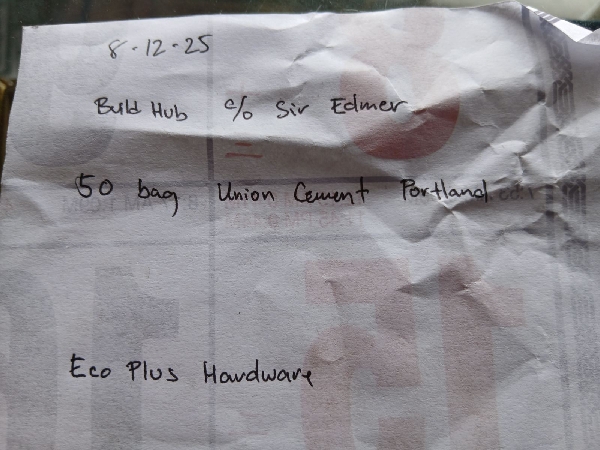 8-12-25
Buld Hub c/o Sir Edmer
50 bag Union Cement Portland
Eco Plus Hardware